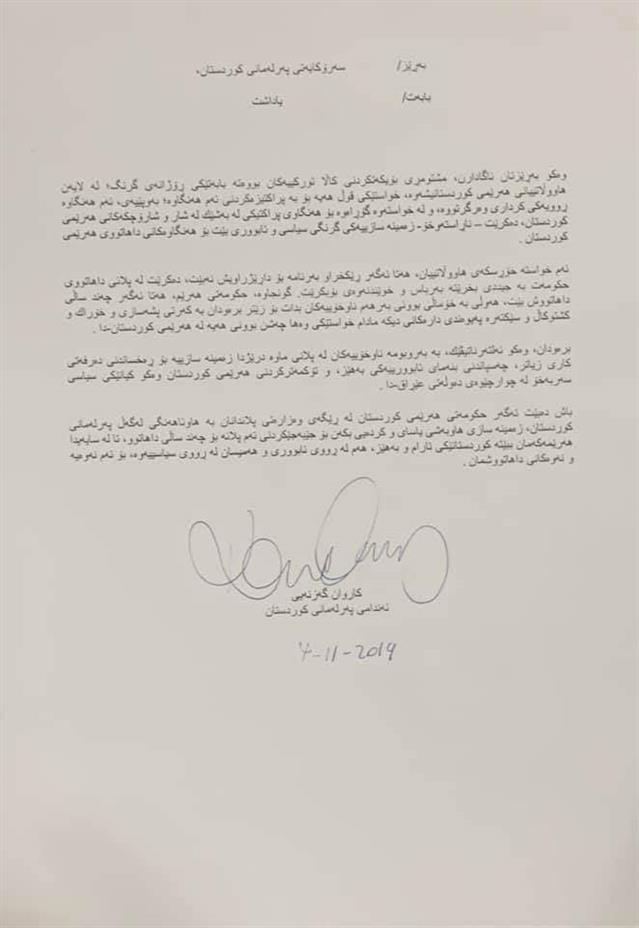 بەڕێز/ سەرۆکایەتی پەرلەمانی کوردستان،
بابەت/ یاداشت
وەکو بەڕێزتان ئاگادارن، مشتومڕی بۆیکەتکردنی کاڵا تورکییەکان بووەتە بابەتێکی ڕۆژانەی گرنگ؛ لە لایەن
هاووڵاتییانی هەرێمی کوردستانیشەوە، خواستێکی قوڵ هەیە بۆ بە پراکتیزەکردنی ئەم هەنگاوە؛ بەوپێیەی، ئەم هەنگاوە
ڕوویەکی کرداری وەرگرتووە، و لە خواستەوە گۆڕاوە بۆ هەنگاوی پراکتیکی لە بەشێك لە شار و شارۆچکەکانی هەرێمی
کوردستان، دەکرێت – ناڕاستەوخۆ- زەمینە سازییەکی گرنگی سیاسی و ئابووری بێت بۆ هەنگاوەکانی داهاتووی هەرێمی
کوردستان .
ئەم خواستە خۆڕسکەی هاووڵاتییان، هەتا ئەگەر ڕێکخراو بەرنامە بۆ داڕێژراویش نەبێت، دەکرێت لە پلانی داهاتووی
حکومەت بە جیددی بخرێتە بەرباس و خوێندنەوەی بۆبکرێت. گونجاوە، حکومەتی هەرێم، هەتا ئەگەر چەند ساڵی
داهاتووش بێت، هەوڵی بە خۆماڵی بوونی بەرهەم ناوخۆییەکان بدات بۆ زێتر برەودان بە کەرتی پشەسازی و خۆراك و
کشتوکاڵ و سێکتەرە پەیوەندی دارەکانی دیکە مادام خواستێکی وەها چەشن بوونی هەیە لە هەرێمی کوردستان-دا .
برەودان، وەکو ئەلتەرناتیڤێك، بە بەروبومە ناوخۆییەکان لە پلانی ماوە درێژدا زەمینە سازییە بۆ ڕەخساندنی دەرفەتی
کاری زیاتر، چەسپاندنی بنەمای ئابوورییەکی بەهێز، و تۆکمەترکردنی هەرێمی کوردستان وەکو کیانێکی سیاسی
سەربەخۆ لە چوارچێوەی دەوڵەتی عێراق-دا .
باش دەبێت ئەگەر حکومەتی هەرێمی کوردستان لە ڕێگەی وەزارەتی پلاندانان بە هاوئاهەنگی لەگەڵ پەرلەمانی
کوردستان، زەمینە سازی هاوبەشی یاسای و کردەیی بکەن بۆ جێبەجێکردنی ئەم پلانە بۆ چەند ساڵی داهاتوو، تا لە سایەیدا
هەرێمەکەمان ببێتە کوردستانێکی ئارام و بەهێز، هەم لە ڕووی ئابووری و هەمیسان لە ڕووی سیاسییەوە، بۆ ئەم نەوەیە
و نەوەکانی داهاتووشمان .
کاروان گەزنەیی
ئەندامی پەرلەمانی کوردستان
4-11-2019